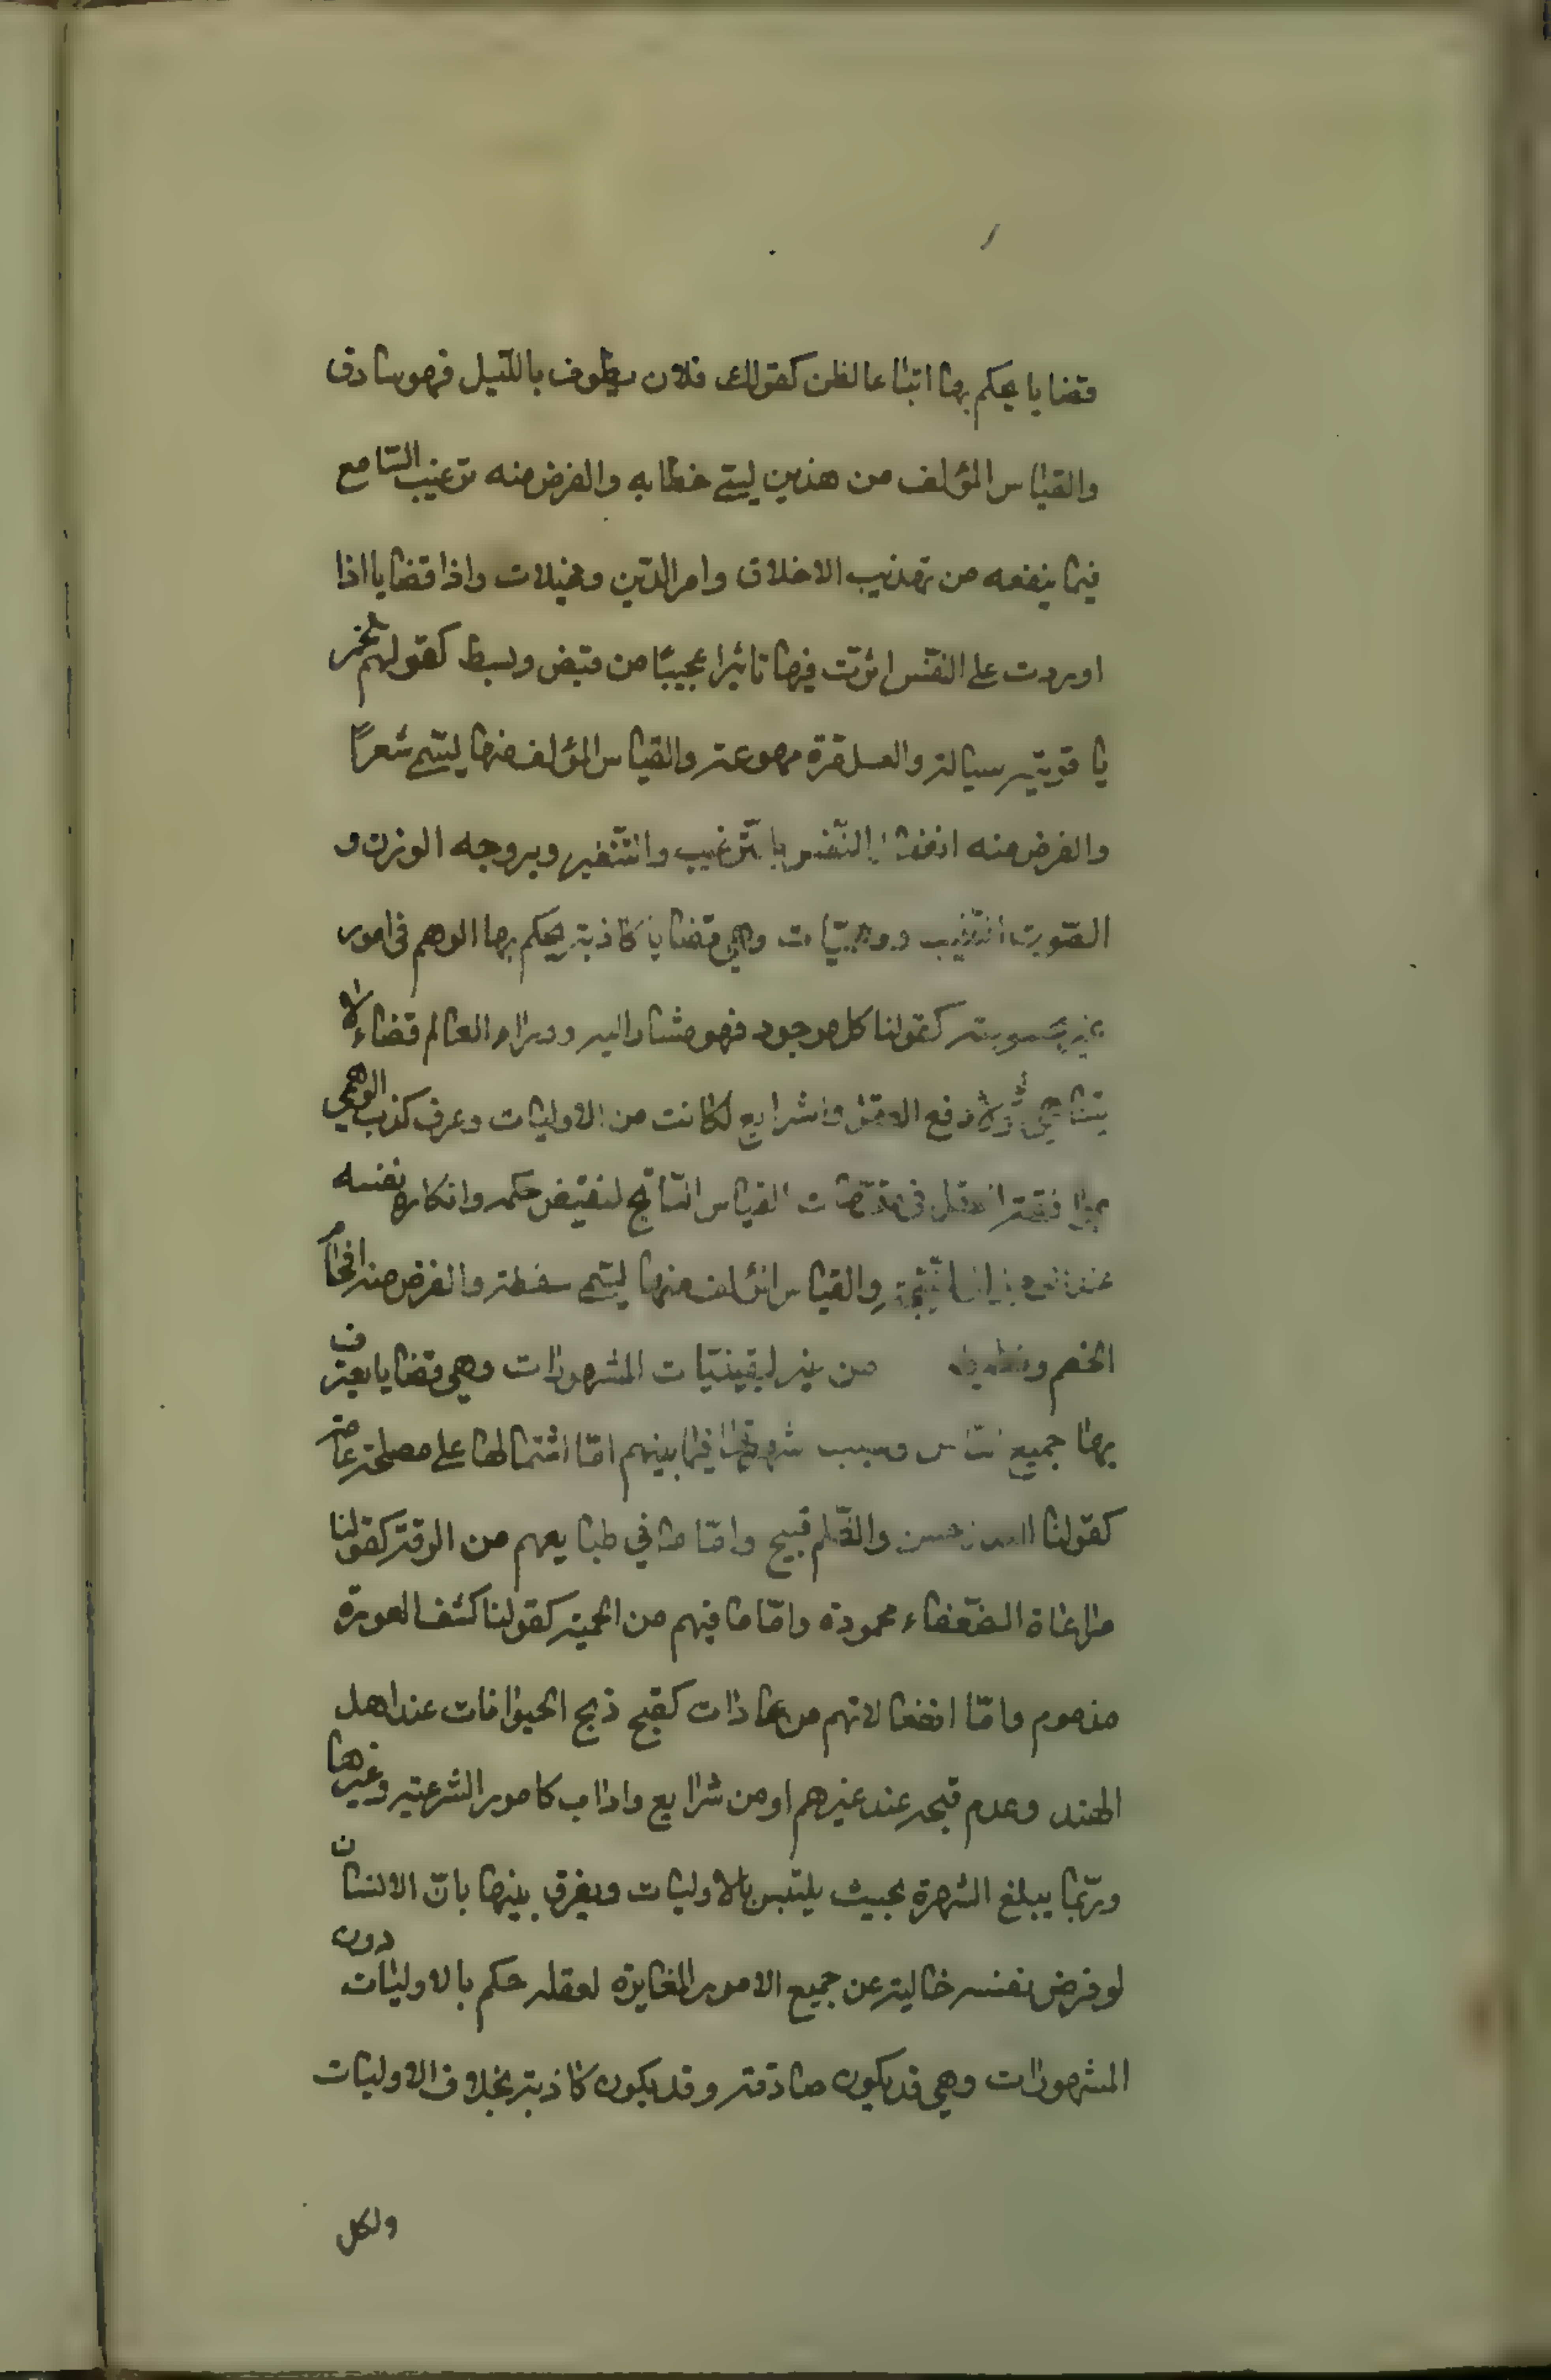 قضايا يحكم بها اتباعا لظن كقولك فلان يطوف بالليل فهو سارق
والقياس المؤلف من هذين ليتمى خطابه والغرض منه ترغيب السامع
فيما ينفعه من تهذيب الاخلاق وامر الدّين ومخيلات واذا قضايا اذا
اوردت على النفس اثرت فيها تاثيرا عجيبًا من قبض وبسط كقولهم الخمر
ياقوتية سيالة والعسل مرة مهوعة والقياس المؤلف منها ليتمى شعرًا
والغرض منه انفعال النّفس بالتّرغيب والتّنفير ويروجه الوزن و
الصّوت الطيب ووهميّات وهي قضايا كاذبة يحكم بها الوهم فى امور
غير محسوسة كقولنا كل موجود فهو مشار اليه ووراء العالم قضاء لا
يتناهى ولولا دفع العقل والشرايع لكانت من الاوليات وعرف كذب الوهمى
بموافقة العقل فى مقدّمات القياس النّاتج لنقيض حكمه وانكاره نفسه
عند الوصول الى النّتيجة والقياس المؤلف منها ليتمى سفسطة والغرض منه افحام
الخصم من غير اليقينيّات المشهورات وهي قضايا يعترف
بها جميع النّاس وسبب شهرتها فيما بينهم امّا اشتمالها على مصلحة عامة
كقولنا العدل حسن والظّلم قبيح وامّا ما في طبايعهم من الرقة كقولنا
مراعاة الضّعفاء محمودة وامّا ما فيهم من الحمية كقولنا كشف العورة
مذموم وامّا انفعالاتهم من عادات كقبح ذبح الحيوانات عند اهل
الهند وعدم قبحه عند غيرهم او من شرايع واداب كامور الشرعية وغيرها
وربّما يبلغ الشهرة بحيث يلتبس بالاوليات ويفرق بينها بانّ الانسان
لو فرض نفسه خالية عن جميع الامور المغايرة لعقله حكم بالاوليات دون
المشهورات وهي قد يكون صادقة وقد يكون كاذبة بخلاف الاوليات
ولكل